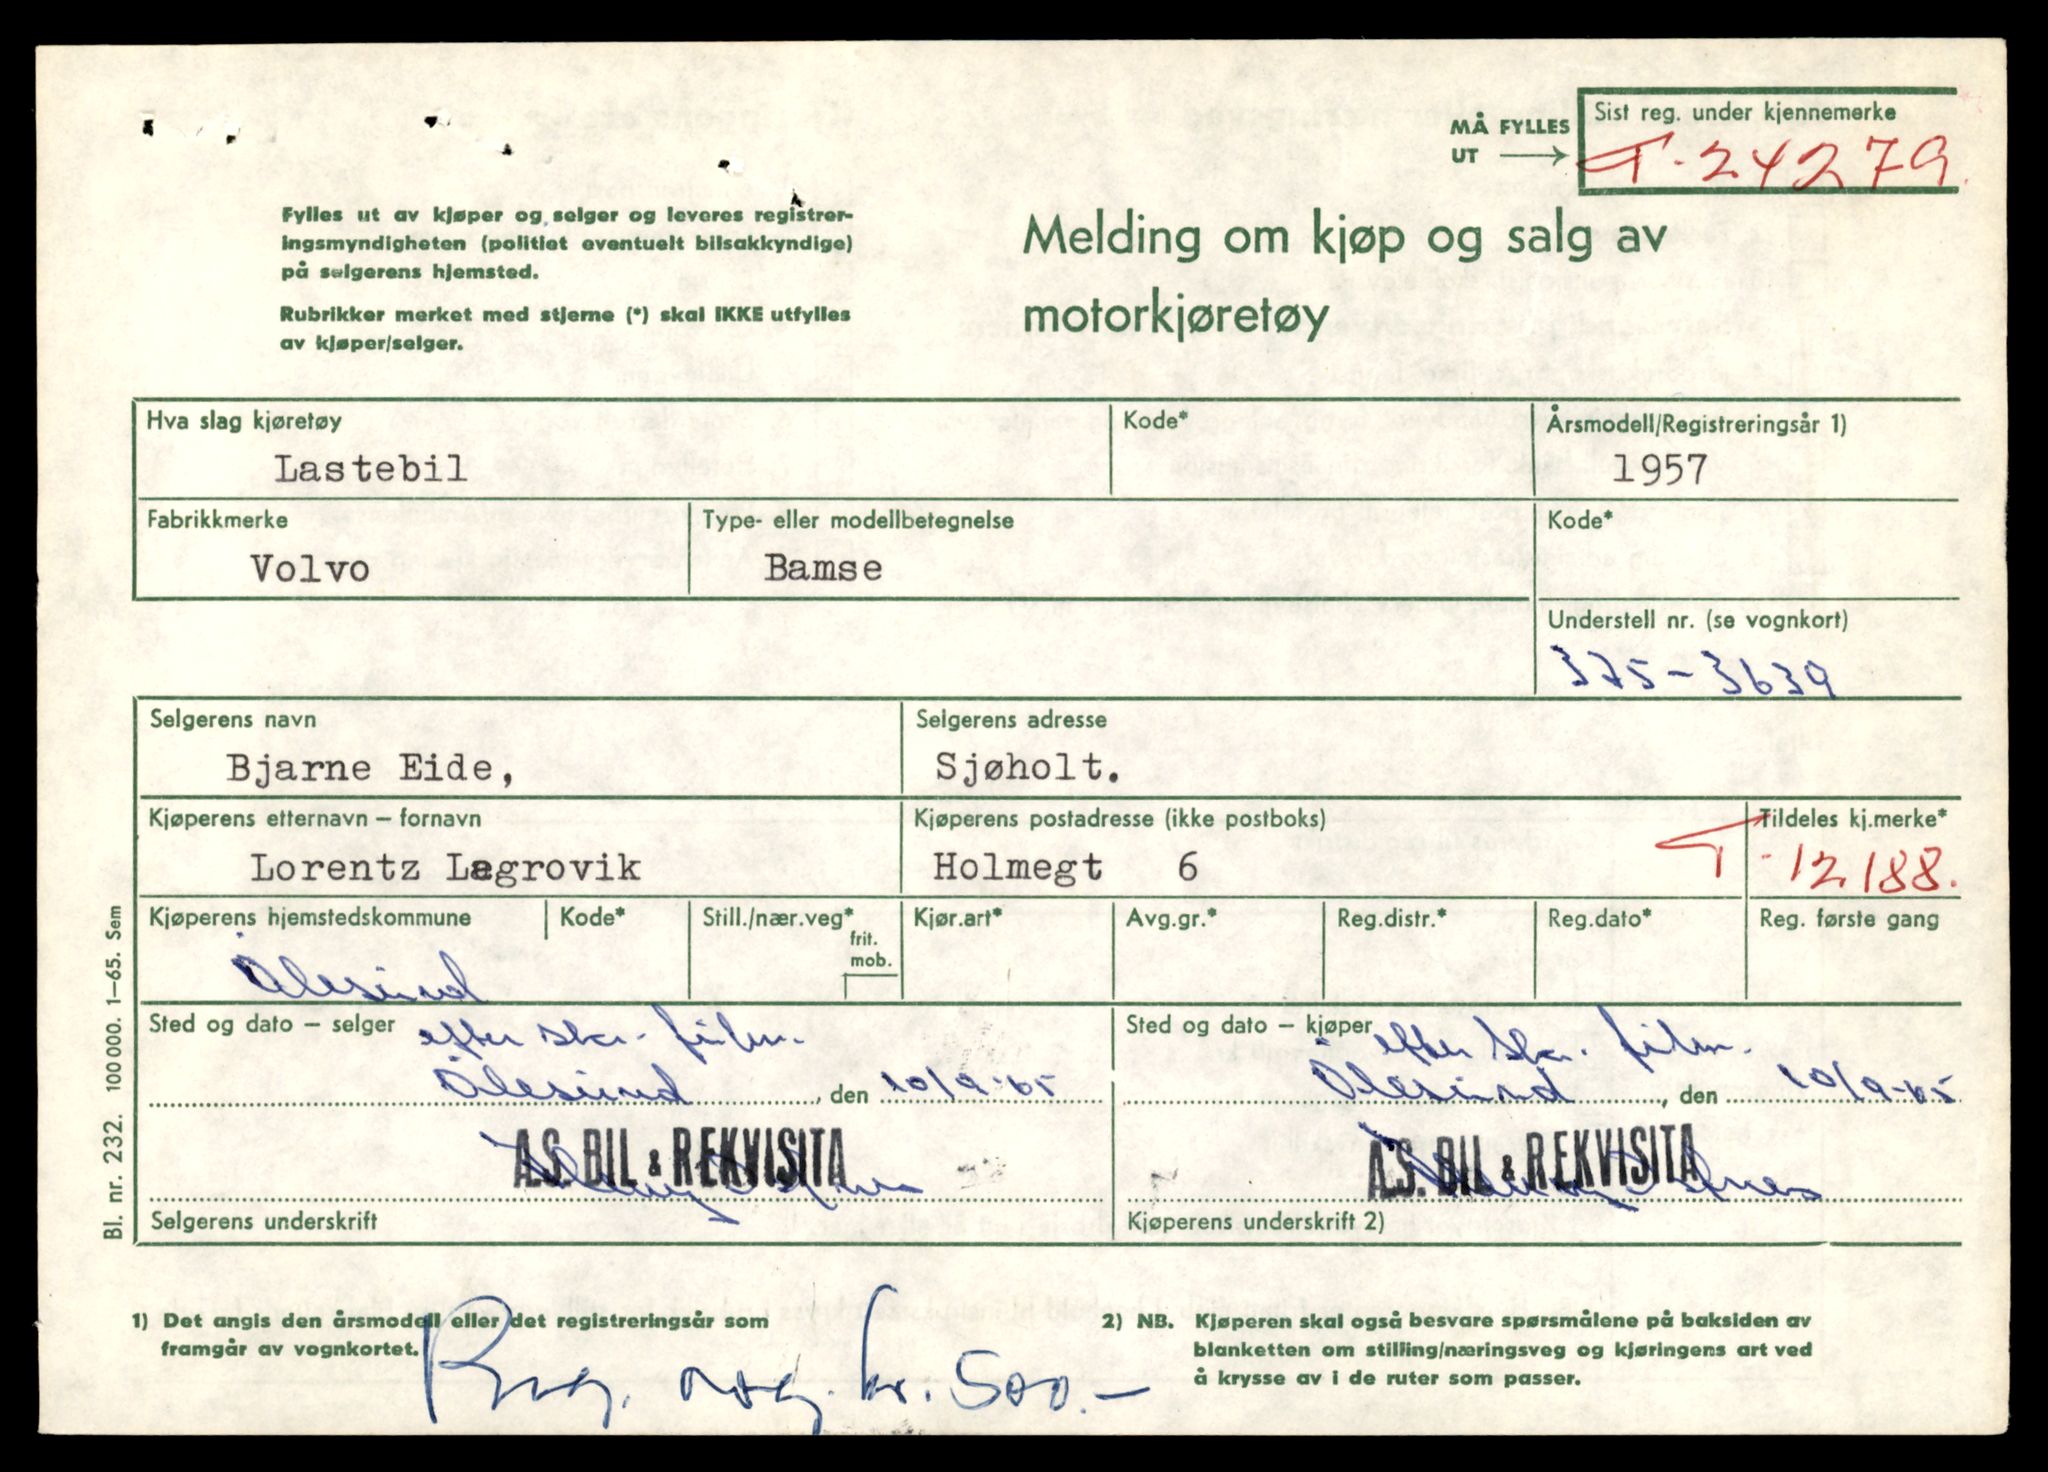 MÅ FYLLES UT
Sist reg. under kjennemerke
T-24279.
Fylles ut av kjøper og selger og leveres registrer-
ingsmyndigheten (politiet eventuelt bilsakkyndige)
på selgerens hjemsted.
Rubrikker merket med stjerne (*) skal IKKE utfylles
av kjøper/selger.
Melding om kjøp og salg av
motorkjøretøy
Hva slag kjøretøy
Lastebil
Kode*
Årsmodell/Registreringsår 1)
1957
Fabrikkmerke
Volvo
Type- eller modellbetegnelse
Bamse
Kode*
Understell nr. (se vognkort)
375-3639
Selgerens navn
Bjarne Eide,
Selgerens adresse
Sjøholt.
Kjøperens etternavn – fornavn
Lorentz Lægrovik
Kjøperens postadresse (ikke postboks)
Holmegt 6
Tildeles kj.merke*
T-12188.
Kjøperens hjemstedskommune
Ålesund
Kode*
Still./nær.veg*
frit.
mob.
Kjør.art*
Avg.gr.*
Reg.distr.*
Reg.dato*
Reg. første gang
Sted og dato – selger
efter skr. film.
Ålesund, den 10/9-65
A.S. BIL & REKVISITA
Selgerens underskrift
Sted og dato – kjøper
efter skr. film.
Ålesund, den 10/9-65
A.S. BIL & REKVISITA
Kjøperens underskrift 2)
Bl. nr. 232. 100 000. 1–65. Sem
1) Det angis den årsmodell eller det registreringsår som
framgår av vognkortet.
2) NB. Kjøperen skal også besvare spørsmålene på baksiden av
blanketten om stilling/næringsveg og kjøringens art ved
å krysse av i de ruter som passer.
kr. 500.-